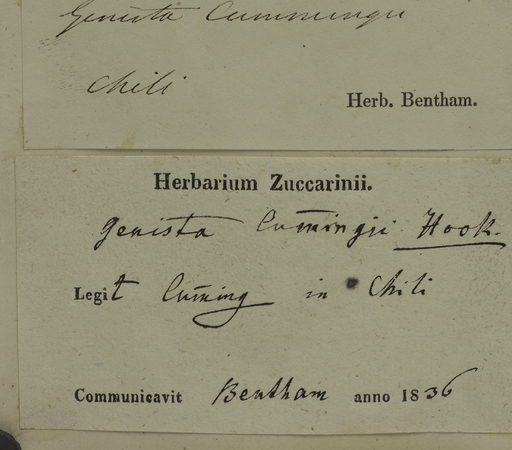 Genista Cummingii
Chili
Herb. Bentham.
Herbarium Zuccarinii.
Genista Cum̅ingii Hook.
Legit Cum̅ing in Chili
Communicavit Bentham anno 1836